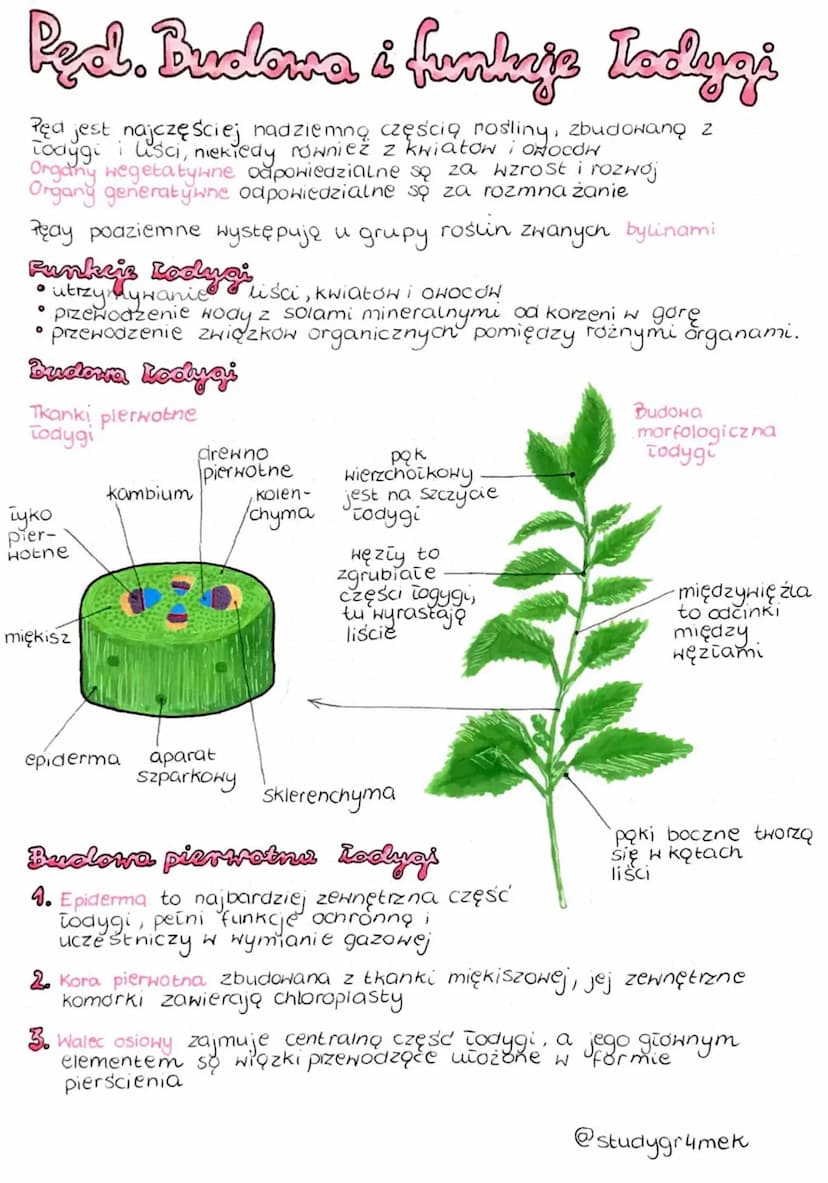 Pęd. Budowa i funkcje łodygi
Pęd jest najczęściej nadziemną częścią rośliny, zbudowaną z
łodygi i liści, niekiedy również z kwiatów i owoców
Organy wegetatywne odpowiedzialne są za wzrost i rozwój
Organy generatywne odpowiedzialne są za rozmnażanie
Pędy podziemne występują u grupy roślin zwanych bylinami
Funkcje łodygi
• utrzymywanie liści, kwiatów i owoców
• przewodzenie wody z solami mineralnymi od korzeni w górę
• przewodzenie związków organicznych pomiędzy różnymi organami.
Budowa łodygi
Tkanki pierwotne
łodygi
łyko
pier-
wotne
kambium
drewno
pierwotne
kolen-
chyma
miękisz
epiderma
aparat
szparkowy
sklerenchyma
Budowa
morfologiczna
łodygi
pąk
wierzchołkowy
jest na szczycie
łodygi
węzły to
zgrubiałe
części łogygi,
tu wyrastają
liście
międzywięźla
to odcinki
między
węzłami
pąki boczne tworzą
się w kątach
liści
Budowa pierwotna łodygi
1. Epiderma to najbardziej zewnętrzna część
łodygi, pełni funkcję ochronną i
uczestniczy w wymianie gazowej
2. Kora pierwotna zbudowana z tkanki miękiszowej, jej zewnętrzne
komórki zawierają chloroplasty
3. Walec osiowy zajmuje centralną część łodygi, a jego głównym
elementem są wiązki przewodzące ułożone w formie
pierścienia
@studygr4mek